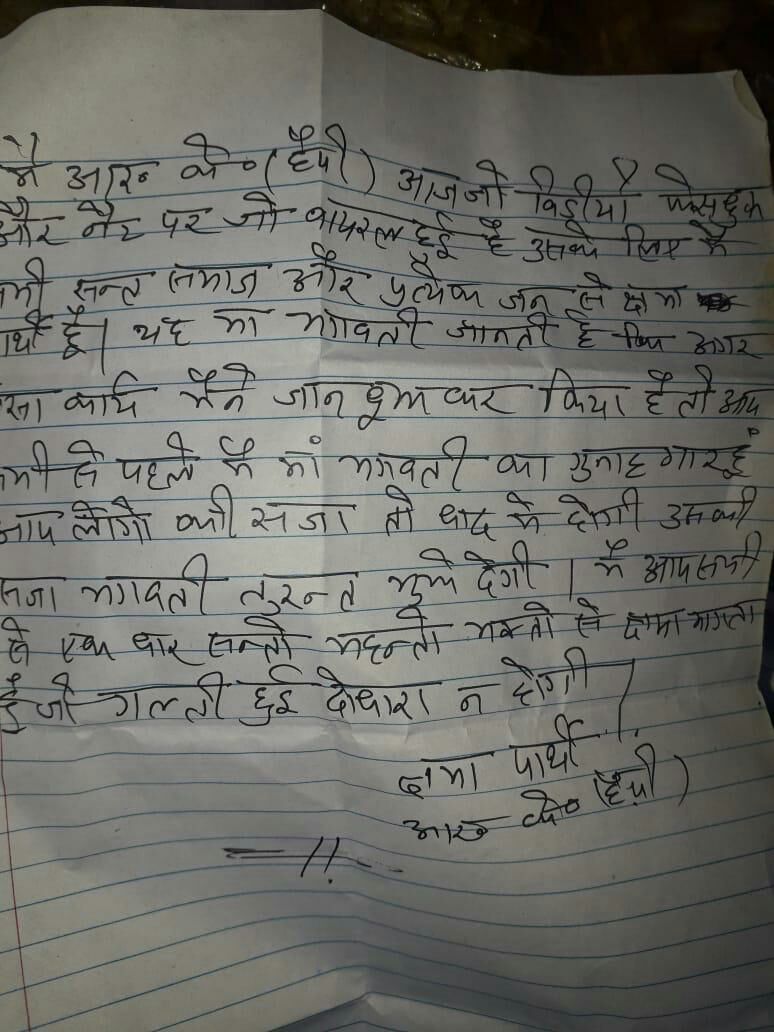 मै आर॰ के॰ (हैपी) आज जो विडीयो फेसबुक
और नैट पर जो वायरल हुई है उसके लिए मै
भी सन्त समाज और प्रत्येक जन से क्षमा
प्रार्थी हूँ। यह मा भगवती जानती है कि अगर
ऐसा कार्य मैने जान बुझ कर किया है तो आप
भी से पहले मै मां भगवती का गुनाह गार हूं
आप लोगो की सजा तो बाद मे होगी उसकी
सजा भगवती तुरन्त मुझे देगी। मै आप सभी
से एक बार सन्तो महन्तो भक्तो से क्षमा मागता
हूँ जो गल्ती हुई दोबारा न होगी।
क्षमा पार्थी
आर॰ के॰ (हैपी)